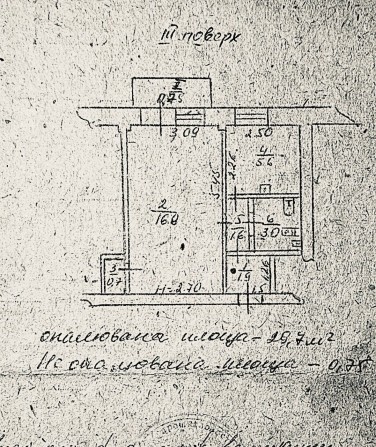 III поверх
I
0,75
3,09 2,50
2,26
4
5.6
5.45
2
16.8
5
1.6
6
3.0
3
0,7
1
1.9
1,26
H=2.70
1,5
опалювана площа – 29,7 м²
Не опалювана площа – 0,75